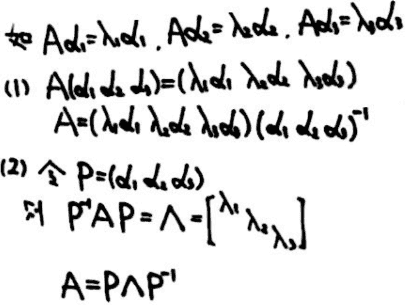 如 Aα₁=λ₁α₁, Aα₂=λ₂α₂, Aα₃=λ₃α₃
(1) A(α₁ α₂ α₃)=(λ₁α₁ λ₂α₂ λ₃α₃)
A=(λ₁α₁ λ₂α₂ λ₃α₃)(α₁ α₂ α₃)⁻¹
(2) 令 P=(α₁ α₂ α₃)
则 P⁻¹AP=Λ=[λ₁ λ₂ λ₃]
A=PΛP⁻¹